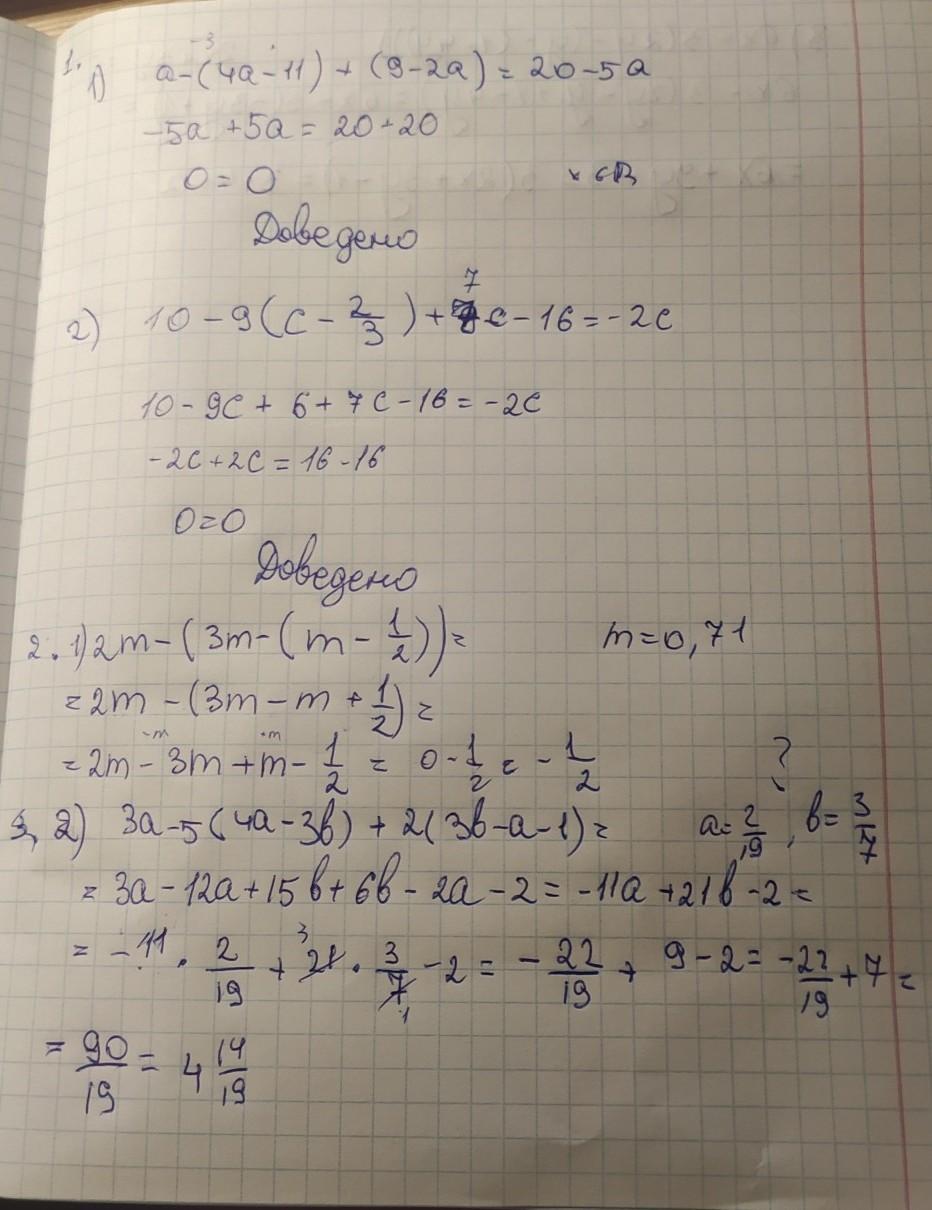 1.
-3
1) a-(4a-11)+(9-2a)=20-5a
-5a+5a=20-20
0=0
Доведено
7
2) 10-9(c-2/3)+c-16=-2c
10-9c+6+7c-16=-2c
-2c+2c=16-16
0=0
Доведено
2. 1) 2m-(3m-(m-1/2))= m=0,71
=2m-(3m-m+1/2)=
-m -m
=2m-3m+m-1/2=0-1/2=-1/2 ?
2) 3a-5(4a-3b)+2(3b-a-1)= a=2/19, b=3/7
=3a-12a+15b+6b-2a-2=-11a+21b-2=
=-11·2/19+21·3/7-2=-22/19+9-2=-22/19+7=
3 1
=90/19=4 14/19